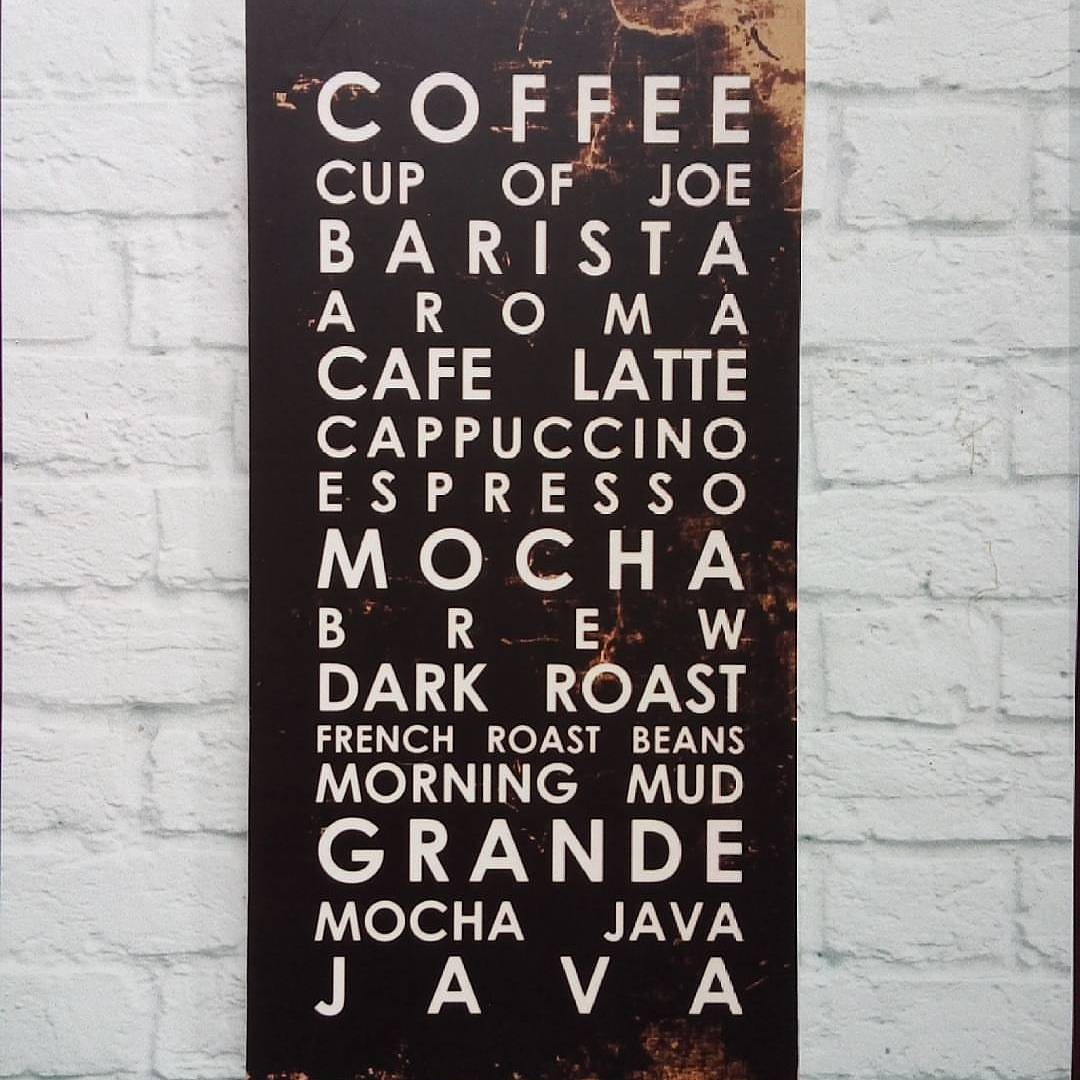 COFFEE
CUP OF JOE
BARISTA
AROMA
CAFE LATTE
CAPPUCCINO
ESPRESSO
MOCHA
BREW
DARK ROAST
FRENCH ROAST BEANS
MORNING MUD
GRANDE
MOCHA JAVA
JAVA